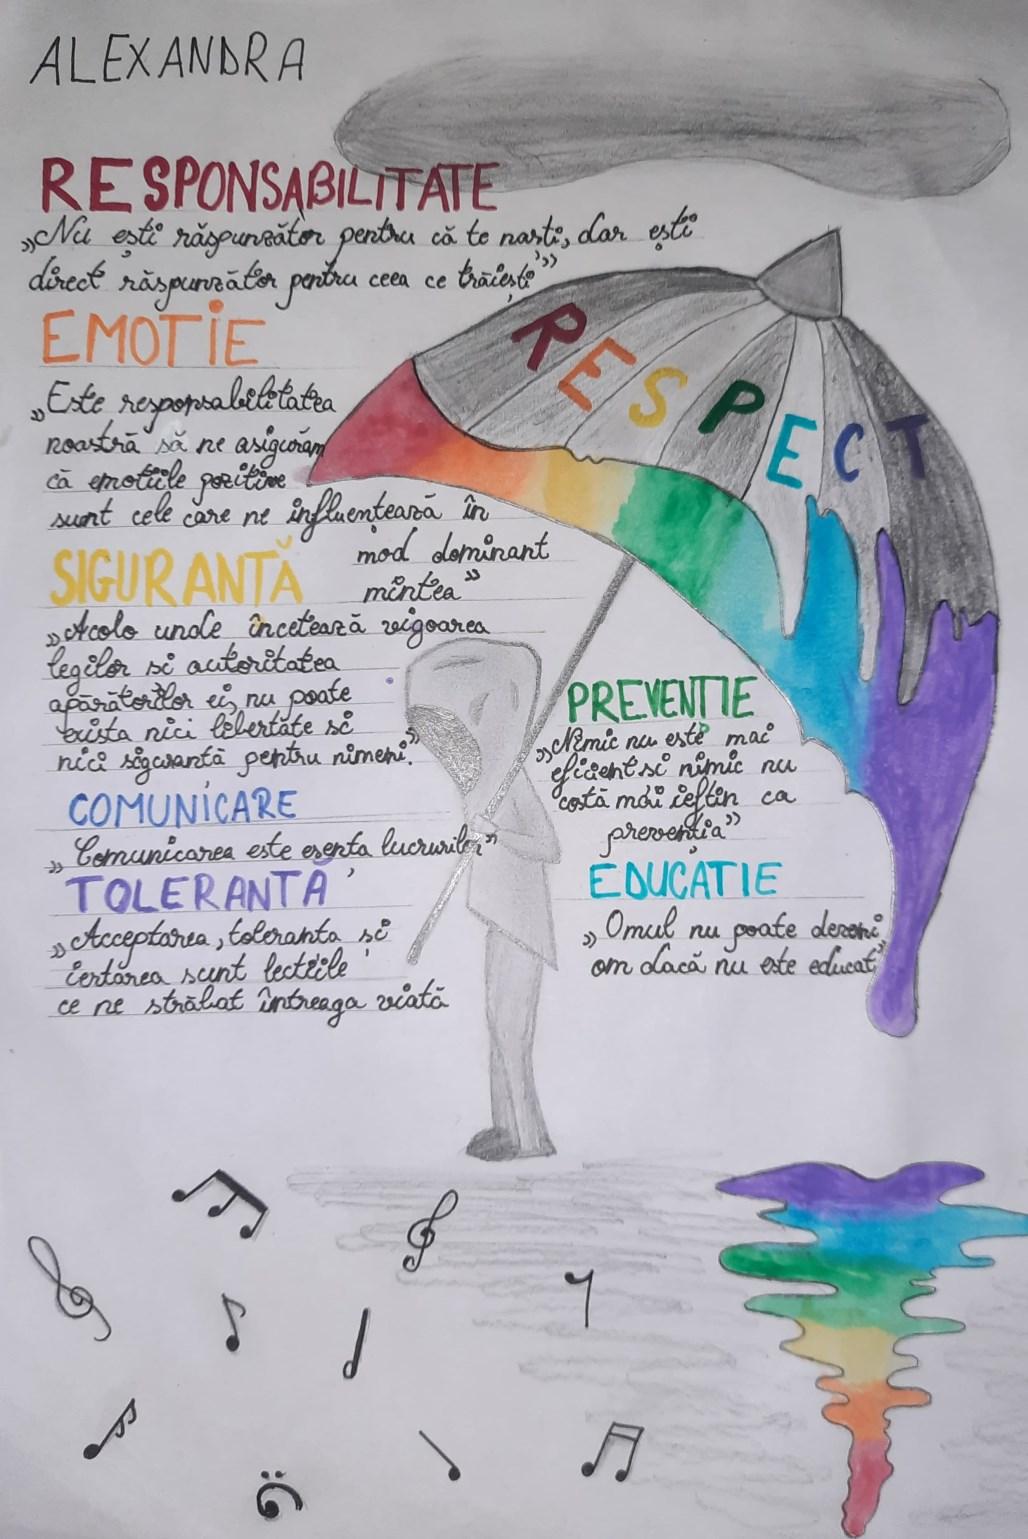 ALEXANDRA
RESPONSABILITATE
„Nu ești răspunzător pentru că te naști, dar ești
direct răspunzător pentru ceea ce trăiești”
EMOȚIE
„Este responsabilitatea
noastră să ne asigurăm
că emoțiile pozitive
sunt cele care ne influențează în
mod dominant
mintea”
SIGURANTĂ
„Acolo unde încetează vigoarea
legilor si autoritatea
apărătorilor ei, nu poate
exista nici libertate si
nici sigurantă pentru nimeni.”
COMUNICARE
„Comunicarea este esența lucrurilor”
TOLERANȚĂ
„Acceptarea, toleranta și
iertarea sunt lectiile
ce ne străbat întreaga viată
RESPECT
PREVENTIE
„Nimic nu este mai
eficient si nimic nu
costă mai ieftin ca
prevenția”
EDUCAȚIE
„Omul nu poate deveni
om dacă nu este educat”